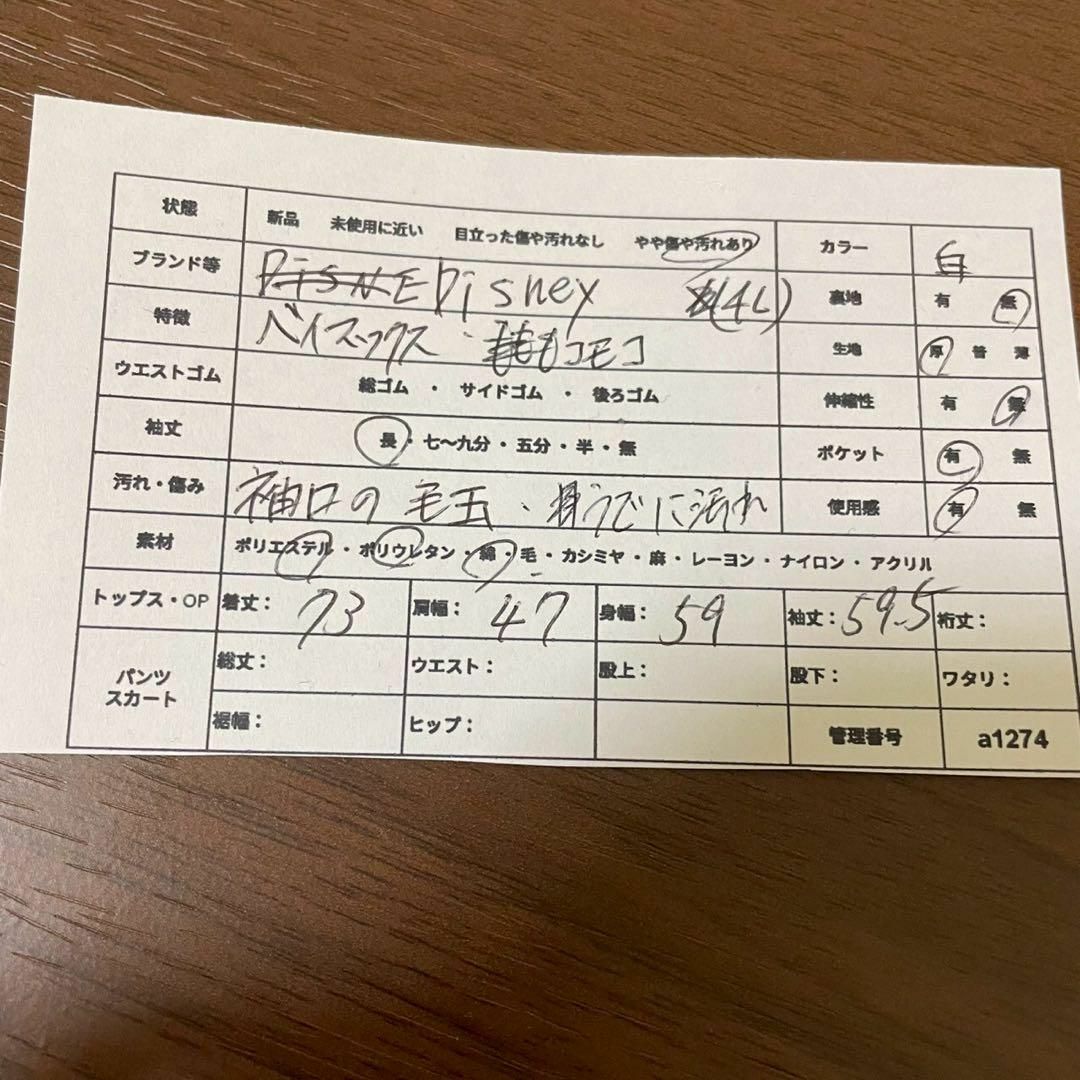 状態 新品 未使用に近い 目立った傷や汚れなし やや傷や汚れあり カラー 白
ブランド等 DiSNE Disney (4L) 裏地 有 無
特徴 ベイマックス・もこモコ 生地 厚 普 薄
ウエストゴム 総ゴム ・ サイドゴム ・ 後ろゴム 伸縮性 有 無
袖丈 長・七〜九分・五分・半・無 ポケット 有 無
汚れ・傷み 袖口の毛玉、うでに汚れ 使用感 有 無
素材 ポリエステル・ポリウレタン・綿・毛・カシミヤ・麻・レーヨン・ナイロン・アクリル
トップス・OP 着丈: 73 肩幅: 47 身幅: 59 袖丈: 59.5 裄丈:
パンツ スカート 総丈: ウエスト: 股上: 股下: ワタリ:
裾幅: ヒップ: 管理番号 a1274